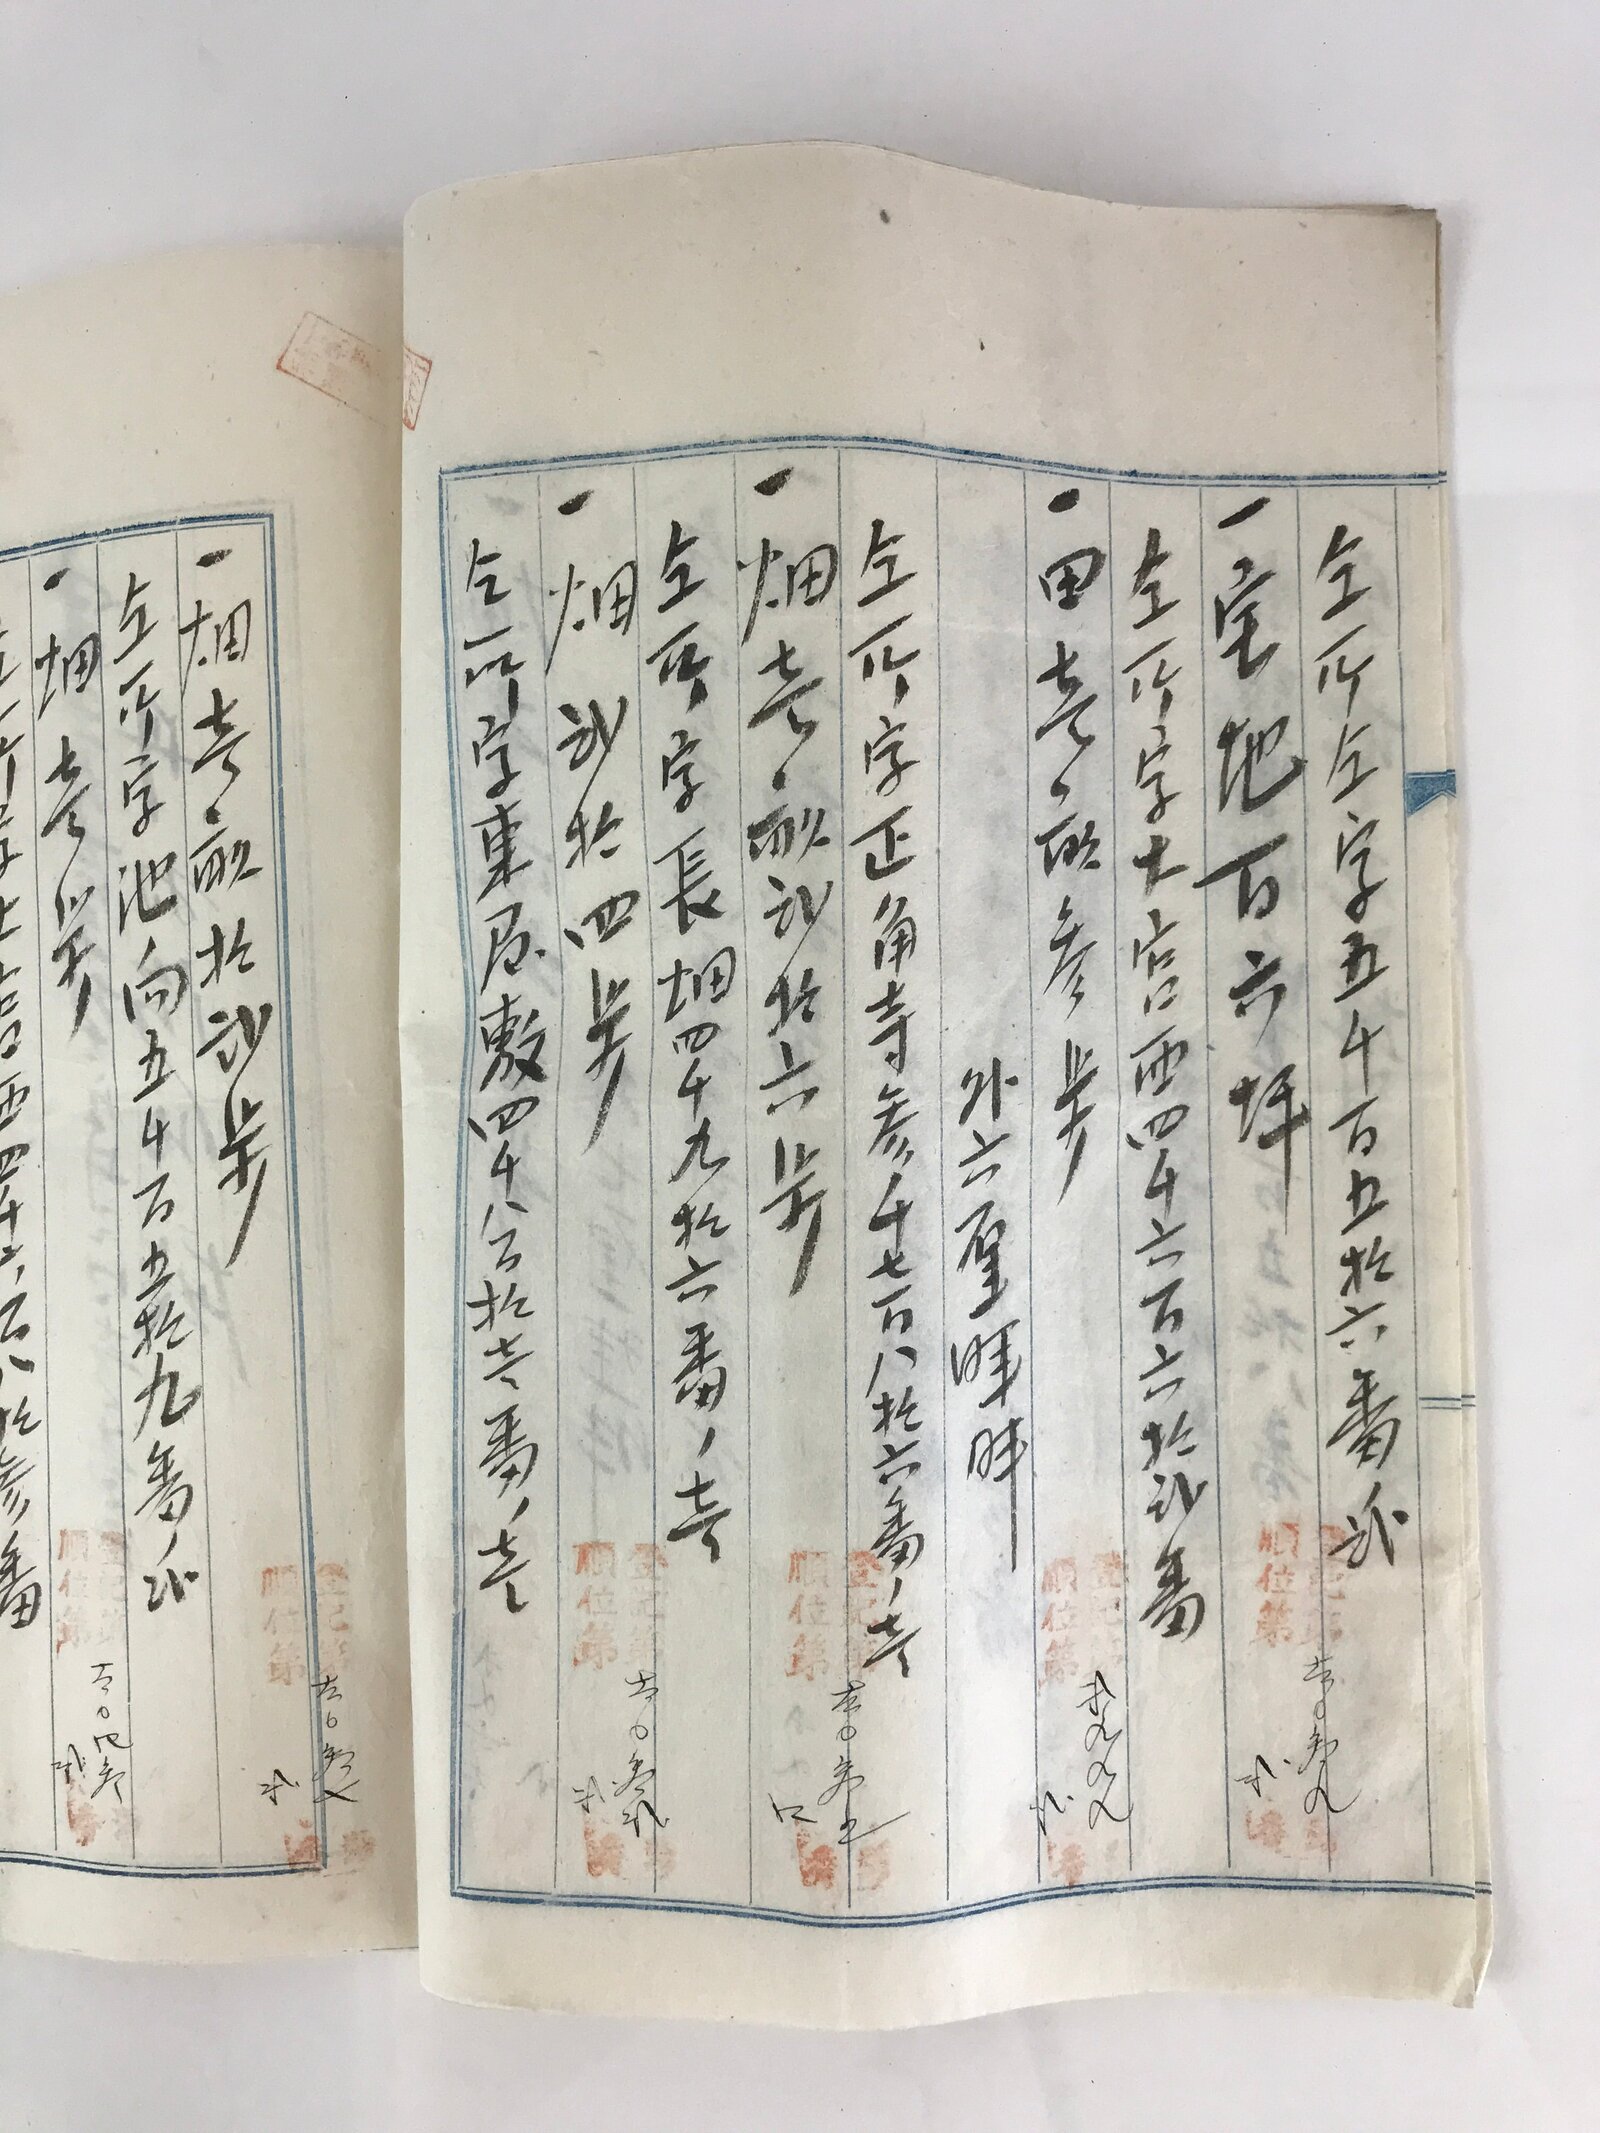 仝所仝字五千百五拾六番ノ弐
一宅地百六坪
仝所字大宮西四千六百六拾弐番
一田壱畝参歩
外六厘畦畔
仝所字正角寺参千七百八拾六番ノ壱
一畑壱畝弐拾六歩
仝所字長畑四千九拾六番ノ壱
一畑弐拾四歩
仝所字東屋敷四千八百拾壱番ノ壱
一畑壱畝拾弐歩
仝所字池向五千百五拾九番ノ弐
一畑壱歩
仝所字大宮西四千六百八拾参番
登記第
順位第
登記第
順位第
登記第
順位第
登記第
順位第
登記第
順位第
順位第